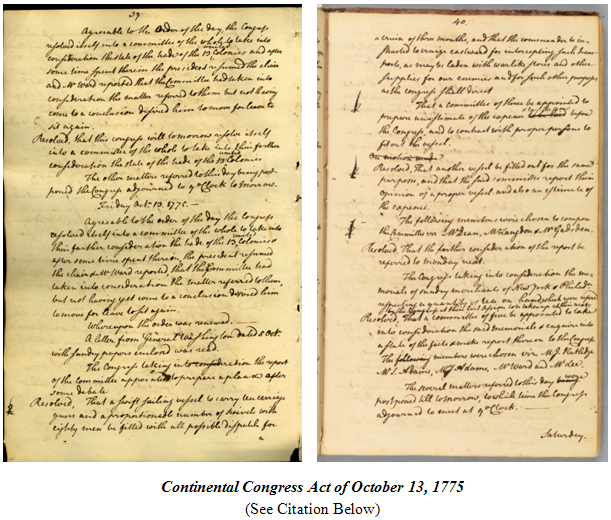 39
Agreeable to the Order of the day, the Congress
resolved itself into a committee of the whole to take into
consideration the state of the trade of the 13 united Colonies and after
some time spent therein the president resumed the chair
and Mr Ward reported that the Committee had taken into
consideration the matter referred to them but not having
come to a conclusion desired him to move for leave to
sit again.
Resolved, that this congress will tomorrow resolve itself
into a committee of the whole to take into their farther
consideration the state of the trade of the 13 united Colonies
The other matters referred to this day being post
poned the Congress adjourned to 9 oClock tomorrow.
Friday Oct. 13. 1775.—
Agreeable to the order of the day the Congress
resolved itself into a committee of the whole to take into
their farther consideration the trade of the 13 united Colonies &
after some time spent therein, the president resumed
the chair & Mr Ward reported that the Committee had
taken into consideration the matter referred to them,
but not having yet come to a conclusion desired him
to move for leave to sit again.
Whereupon the order was renewed.—
A letter from General Washington dated 5 Oct.
with sundry papers inclosed was read
The Congress taking into consideration the report
of the Committee appointed to prepare a plan & after
some debate
Resolved, That a swift sailing vessel to carry ten carriage
guns and a proportionable number of swivels with
eighty men be fitted with all possible dispatch for
a
40.
a cruise of three months, and that the commander be in
structed to cruize eastward for intercepting such trans
ports, as may be laden with warlike stores and other
supplies for our enemies and for such other purposes
as the congress shall direct
That a committee of three be appointed to
prepare an estimate of the expence & lay the same before
the Congress, and to contract with proper persons to
fit out the vessel.
On motion made
Resolved, That another vessel be fitted out for the same
purposes, and that the said committee report their
opinion of a proper vessel and also an estimate of
the expence.
The following members were chosen to compose
the committee viz Mr Dean, Mr Langdon & Mr Gadsden.
Resolved, That the farther consideration of the report be
referred to monday next.
The Congress taking into consideration the me
morials of sundry merchants of New York & Philadn
respecting a quantity of tea on hand which were referred
Resolved, That a committee of five be appointed to take
into consideration the said memorials & enquire into
a state of the facts & make report thereon to the Congress
The following members were chosen viz Mr J Rutledge
Mr S. Adams, Mr J Adams, Mr Ward and Mr Lee.
The several matters referred to this day being were
postponed till tomorrow, to which time the Congress
adjourned to meet at 9 oClock.—
Saturday.
Continental Congress Act of October 13, 1775
(See Citation Below)